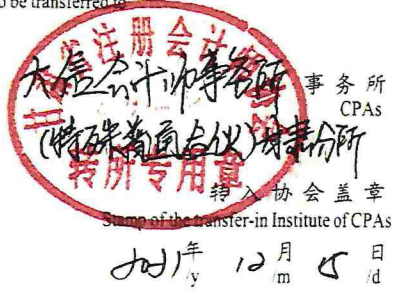 to be transferred to
大信会计师事务所 事务所
CPAs
(特殊普通合伙)甘肃分所
转所专用章
转入协会盖章
Stamp of the transfer-in Institute of CPAs
2021年 12月 15日
/y /m /d